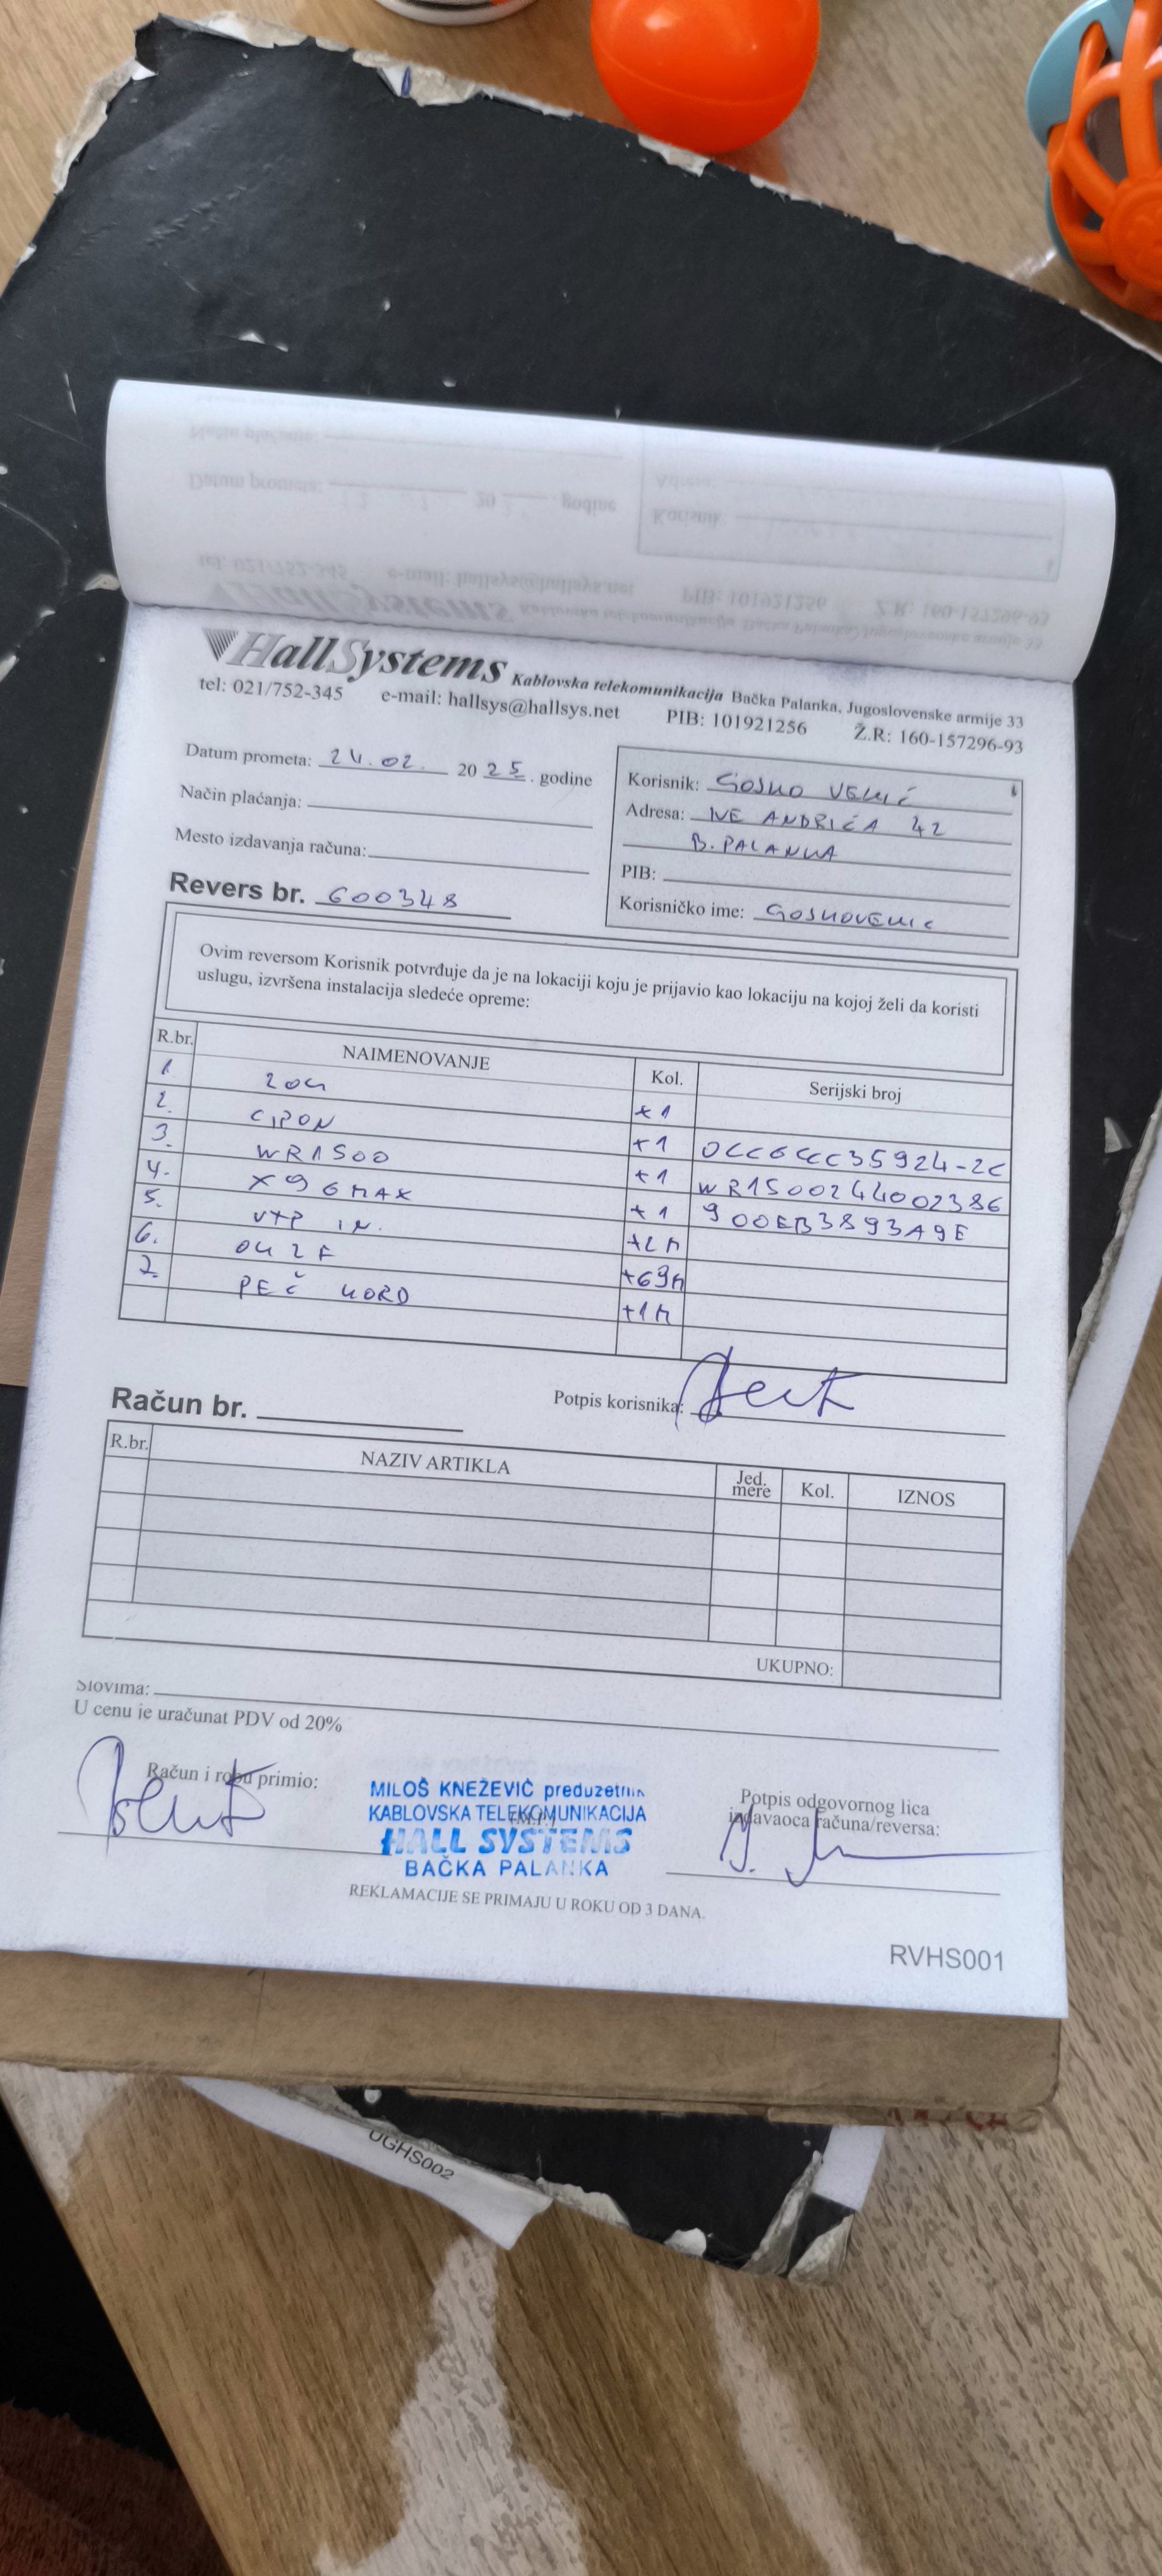 HallSystems Kablovska telekomunikacija Bačka Palanka, Jugoslovenske armije 33
tel: 021/752-345 e-mail: hallsys@hallsys.net PIB: 101921256 Ž.R: 160-157296-93
Datum prometa: 24.02. 20 25. godine
Način plaćanja:
Mesto izdavanja računa:
Revers br. 600348
Korisnik: GOSKO VEKIĆ
Adresa: IVE ANDRIĆA 42
B. PALANKA
PIB:
Korisničko ime: GOSKOVEKIC
Ovim reversom Korisnik potvrđuje da je na lokaciji koju je prijavio kao lokaciju na kojoj želi da koristi
uslugu, izvršena instalacija sledeće opreme:
R.br. NAIMENOVANJE Kol. Serijski broj
1. +1
2. CIPON +1
3. WR1500 +1 WR1500244002386
4. X96MAX +1 900EB3893A9E
5. UTP IN.
6. +69M
7. PEČ KORD +1M
Potpis korisnika:
Račun br.
R.br. NAZIV ARTIKLA Jed. mere Kol. IZNOS
UKUPNO:
Slovima:
U cenu je uračunat PDV od 20%
Račun i robu primio:
MILOŠ KNEŽEVIĆ preduzetnik
KABLOVSKA TELEKOMUNIKACIJA
HALL SYSTEMS
BAČKA PALANKA
Potpis odgovornog lica
izdavaoca računa/reversa:
REKLAMACIJE SE PRIMAJU U ROKU OD 3 DANA.
RVHS001
UGHS002